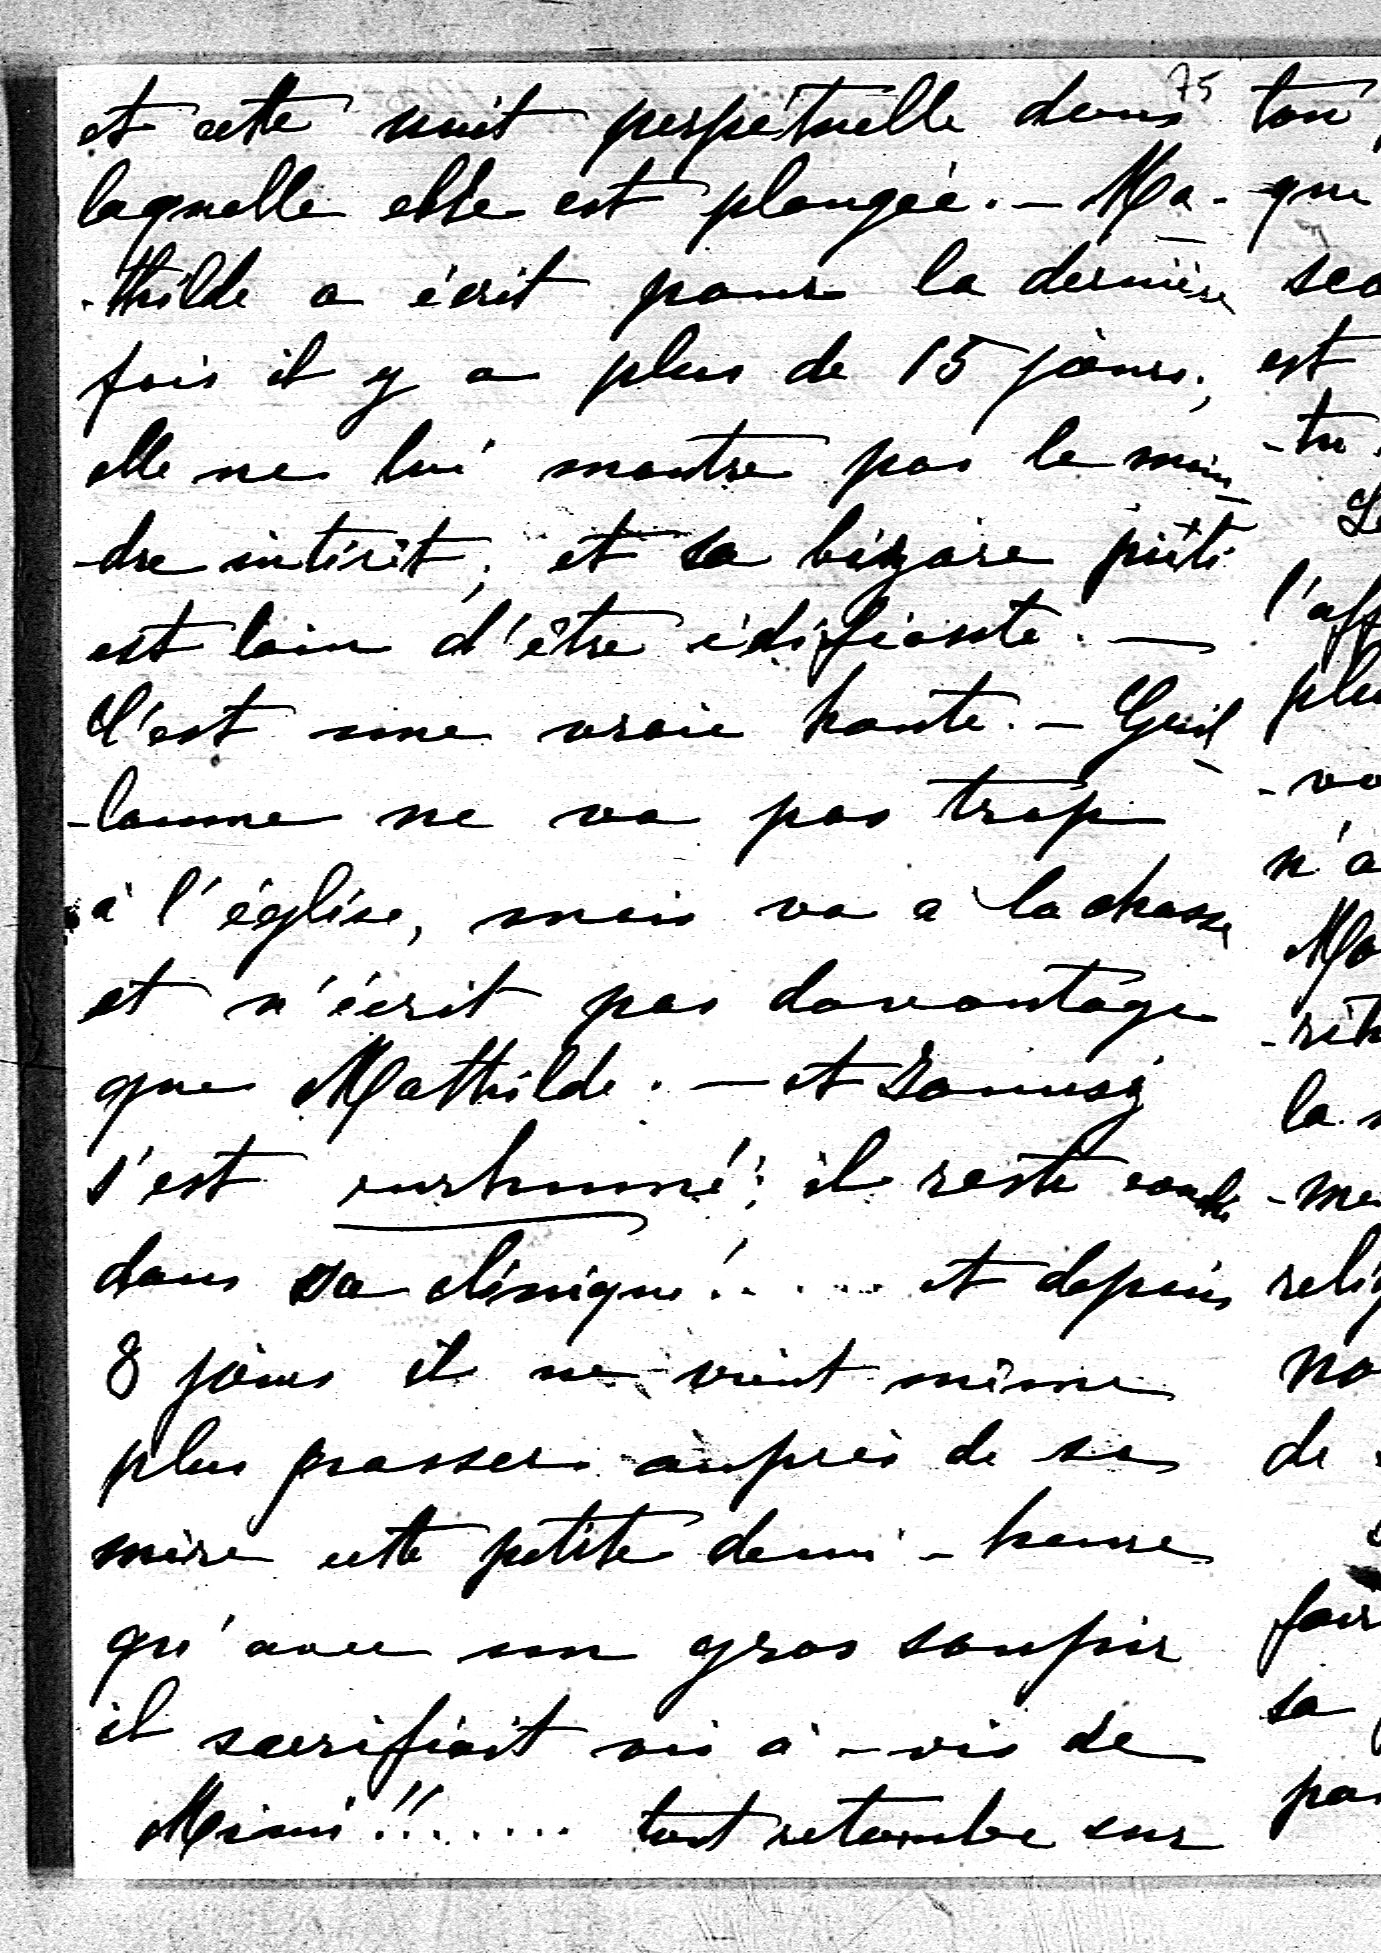 75
et cette nuit perpétuelle dans
laquelle elle est plongée. — Ma-
-thilde a écrit pour la dernière
fois il y a plus de 15 jours;
elle ne lui montre pas le moin-
-dre intérêt; et sa bizare piété
est loin d'être édifiante. —
C'est une vraie honte. — Guil-
-laume ne va pas trop
à l'église, mais va à la chasse
et n'écrit pas davantage
que Mathilde. — et
s'est enrhumé; il reste couché
dans sa clinique!..... et depuis
8 jours il ne vient même
plus passer auprès de sa
mère cette petite demi-heure
qu'avec un gros soupir
il sacrifiait vis à-vis de
Mimi!!....... tout retombe sur
ton
que
est
-tu
l'aff
plu
-vo
n'a
Ma
la
-me
relig
no
de
fair
sa
pas